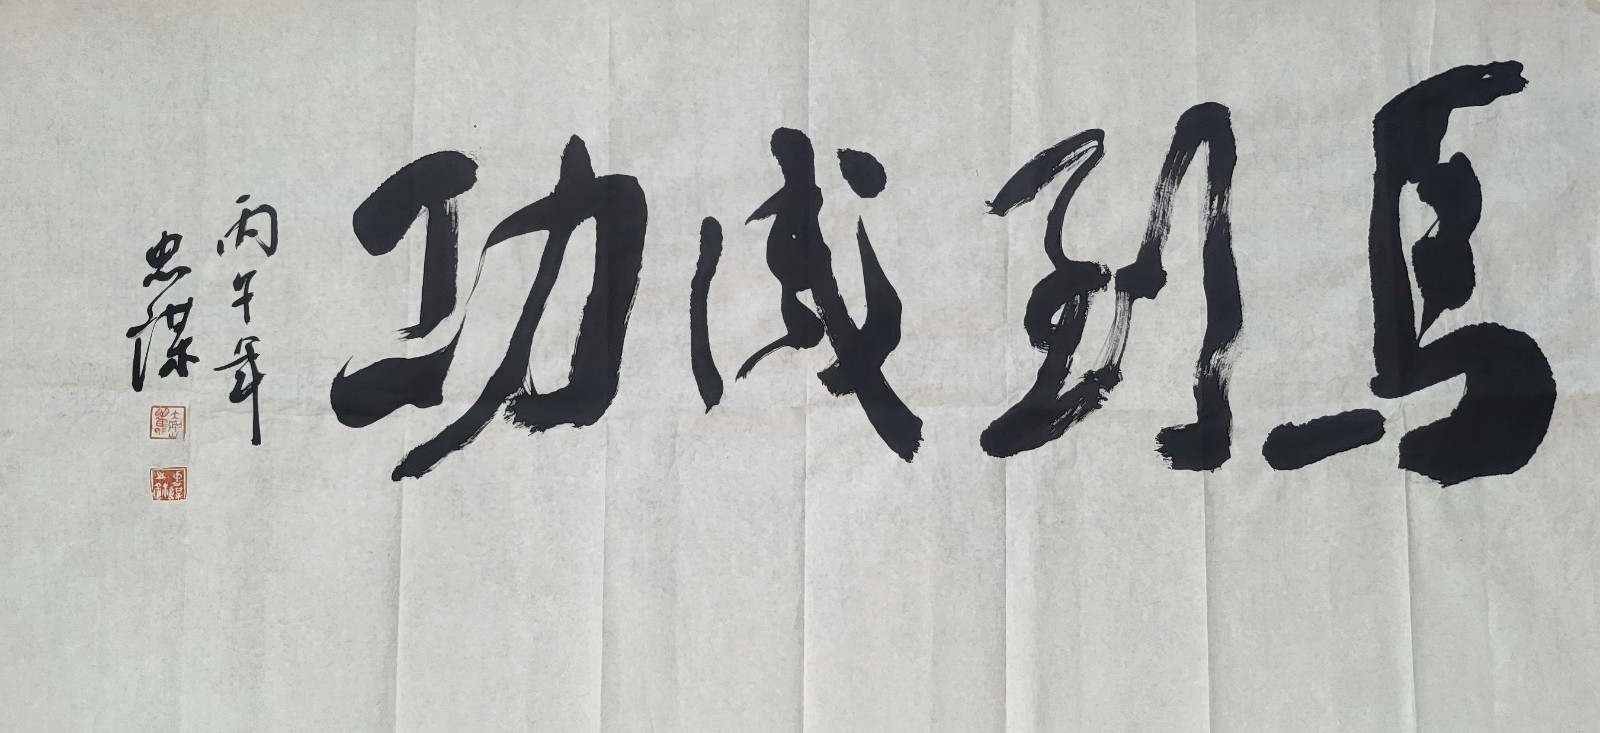 馬到成功
丙午年
忠謀